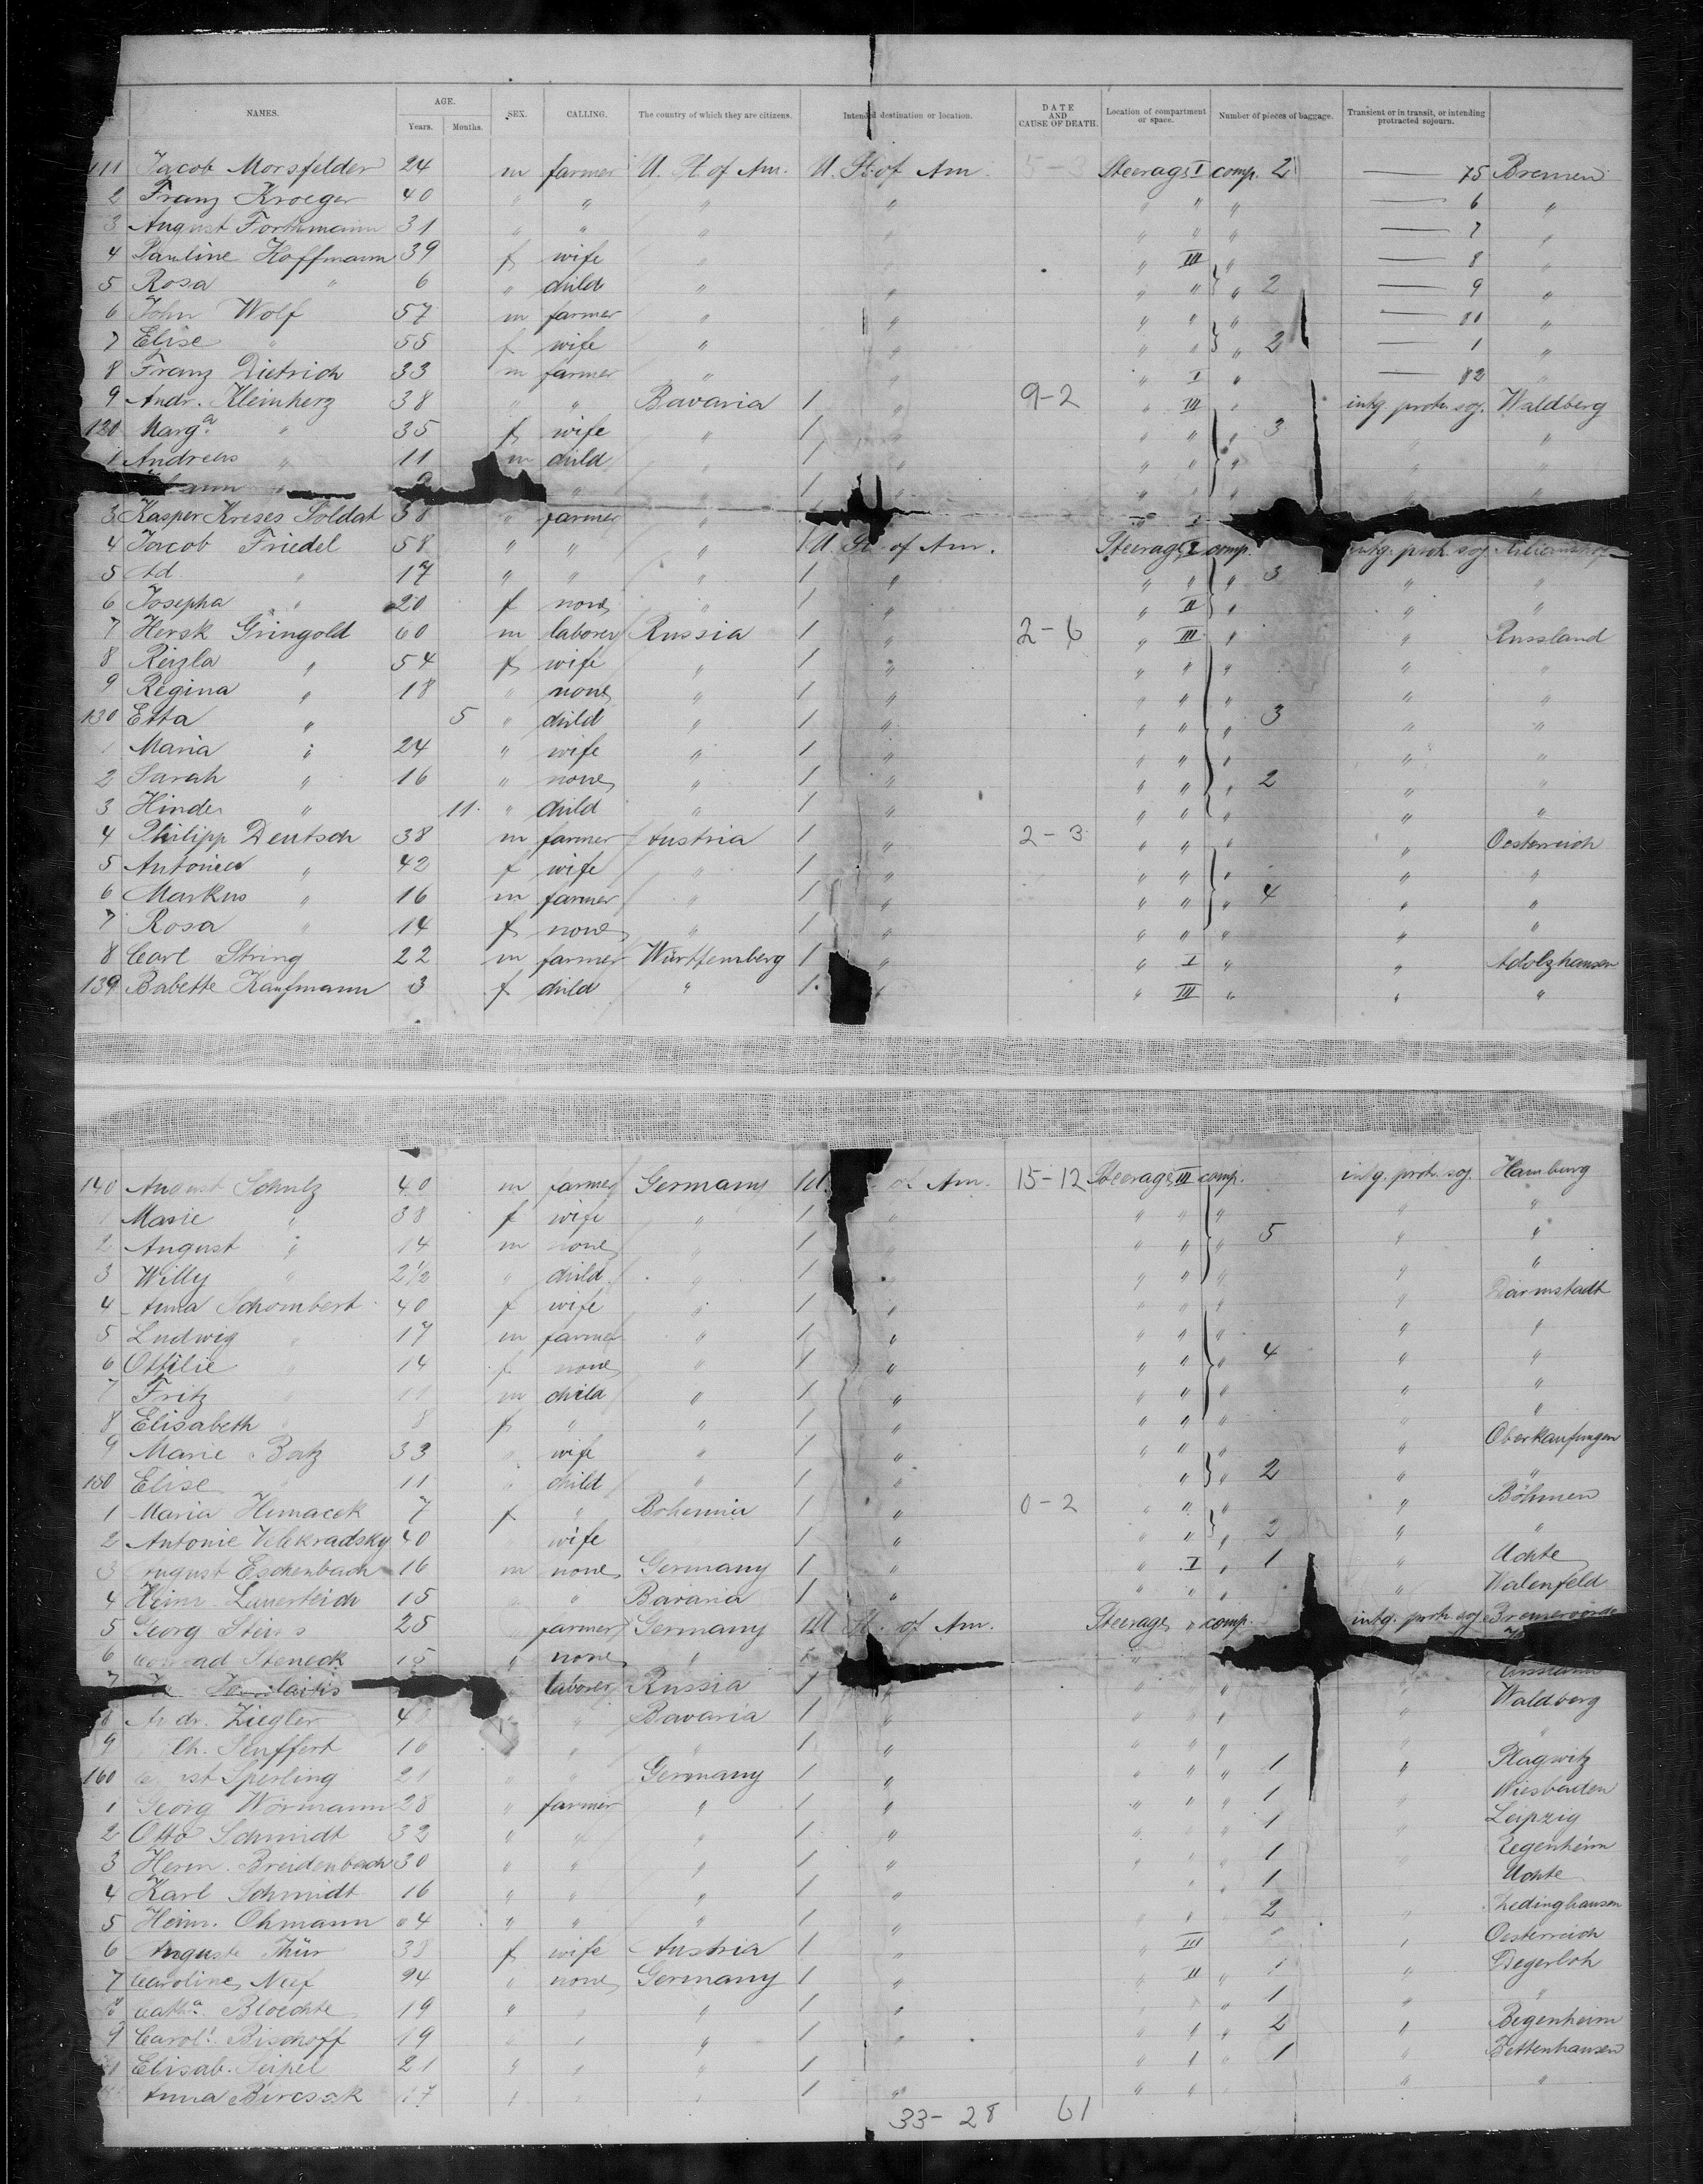 NAMES. AGE. Years. Months. SEX. CALLING. The country of which they are citizens. Intended destination or location. DATE AND CAUSE OF DEATH. Location of compartment or space. Number of pieces of baggage. Transient or in transit, or intending protracted sojourn.
111 Jacob Morsfelder 24 m farmer U. St. of Am. U. St. of Am. 5-3 Steerage I comp. 2 — 75 Bremen
2 Franz Kroeger 40 " " " " " " " — 6 "
3 August Forthmann 31 " " " " " " " — 7 "
4 Pauline Hoffmann 39 f wife " " " III " — 8 "
5 Rosa " 6 " child " " " " " 2 — 9 "
6 John Wolf 57 m farmer " " " " " — 81 "
7 Elise " 55 f wife " " " " " 2 — 1 "
8 Franz Dietrich 33 m farmer " " " I " — 82 "
9 Andr. Kleinherz 38 " " Bavaria 1 " 9-2 " III " intg. protr. soj. Waldberg
120 Marga " 35 f wife " 1 " " " " 3 " "
1 Andreas " 11 m child " 1 " " " " " "
" " " 1 " " " " " "
3 Kasper Kreses Soldat 58 " farmer " " I
4 Jacob Friedel 58 " " " 1 U. St. of Am. Steerage I comp. intg. protr. soj.
5 Ad. " 17 " " " 1 " " " " 3 " "
6 Josepha " 20 f none " 1 " " II " " "
7 Hersk Gringold 60 m laborer Russia 1 " 2-6 " III " " Russland
8 Reizla " 54 f wife " 1 " " " " " "
9 Regina " 18 " none " 1 " " " " " "
130 Etta " 5 " child " 1 " " " " 3 " "
1 Maria " 24 " wife " 1 " " " " " "
2 Sarah " 16 " none " 1 " " " " 2 " "
3 Hinde " 11 " child " 1 " " " " " "
4 Philipp Deutsch 38 m farmer Austria 1 " 2-3 " " " " Oesterreich
5 Antonia " 42 f wife " 1 " " " " " "
6 Markus " 16 m farmer " 1 " " " " 4 " "
7 Rosa " 14 f none " 1 " " " " " "
8 Carl String 22 m farmer Württemberg 1 " " I " " Adolzhausen
139 Babette Kaufmann 3 f child " 1 " " III " " "
140 August Schulz 40 m farmer Germany 1 U. of Am. 15-12 Steerage III comp. intg. protr. soj. Hamburg
1 Marie " 38 f wife " 1 " " " " " "
2 August " 14 m none " 1 " " " " 5 " "
3 Willy " 2½ " child " 1 " " " " " "
4 Anna Schombert 40 f wife " 1 " " " " " Darmstadt
5 Ludwig " 17 m farmer " 1 " " " " " "
6 Ottilie " 14 f none " 1 " " " " 4 " "
7 Fritz " 11 m child " 1 " " " " " "
8 Elisabeth " 8 f " " 1 " " " " " "
9 Marie Batz 33 " wife " 1 " " " " " Oberkaufungen
150 Elise " 11 " child " 1 " " " 2 " "
1 Maria Humacek 7 f " Bohemia 1 " 0-2 " " " " Böhmen
2 Antonie Velekradsky 40 " wife 1 " " " " 2 " "
3 August Eschenbach 16 m none Germany 1 " " I " 1 " Uchte
4 Heinr. Lauerteich 15 " " Bavaria 1 " " " " " Walenfeld
5 Georg Steins 25 " farmer Germany 1 U. St. of Am. Steerage " comp. intg. protr. soj. Bremervörde
6 Conrad Steneck 15 " none " 1
7 laborer Russia 1 " " " " "
8 Andr. Ziegler 4 " " Bavaria 1 " " " " " Waldberg
9 Seuffert 16 " " 1 " " " " "
160 Sperling 21 " " Germany 1 " " " " 1 " Plagwitz
1 Georg Wörmann 28 " farmer " 1 " " " " 1 " Wiesbaden
2 Otto Schmidt 32 " " " 1 " " " " 1 " Leipzig
3 Herm. Breidenbach 30 " " " 1 " " " " 1 " Regenheim
4 Karl Schmidt 16 " " " 1 " " " 1 Uchte
5 Heinr. Ohmann 64 " " " 1 " " " 2 " Ledinghausen
6 Auguste Thür 38 f wife Austria 1 " " III " Oesterreich
7 Caroline Neef 24 " none Germany 1 " " II " 1 " Degerloh
8 Catha. Bloechte 19 " " " 1 " " 1 " "
9 Carol. Bischoff 19 " " " 1 " " " " 2 " Begenheim
Elisab. Seipel 21 " " " 1 " " " 1 " Bettenhausen
Anna Bircsak 17 " " " 1 " " " " "
33-28 61